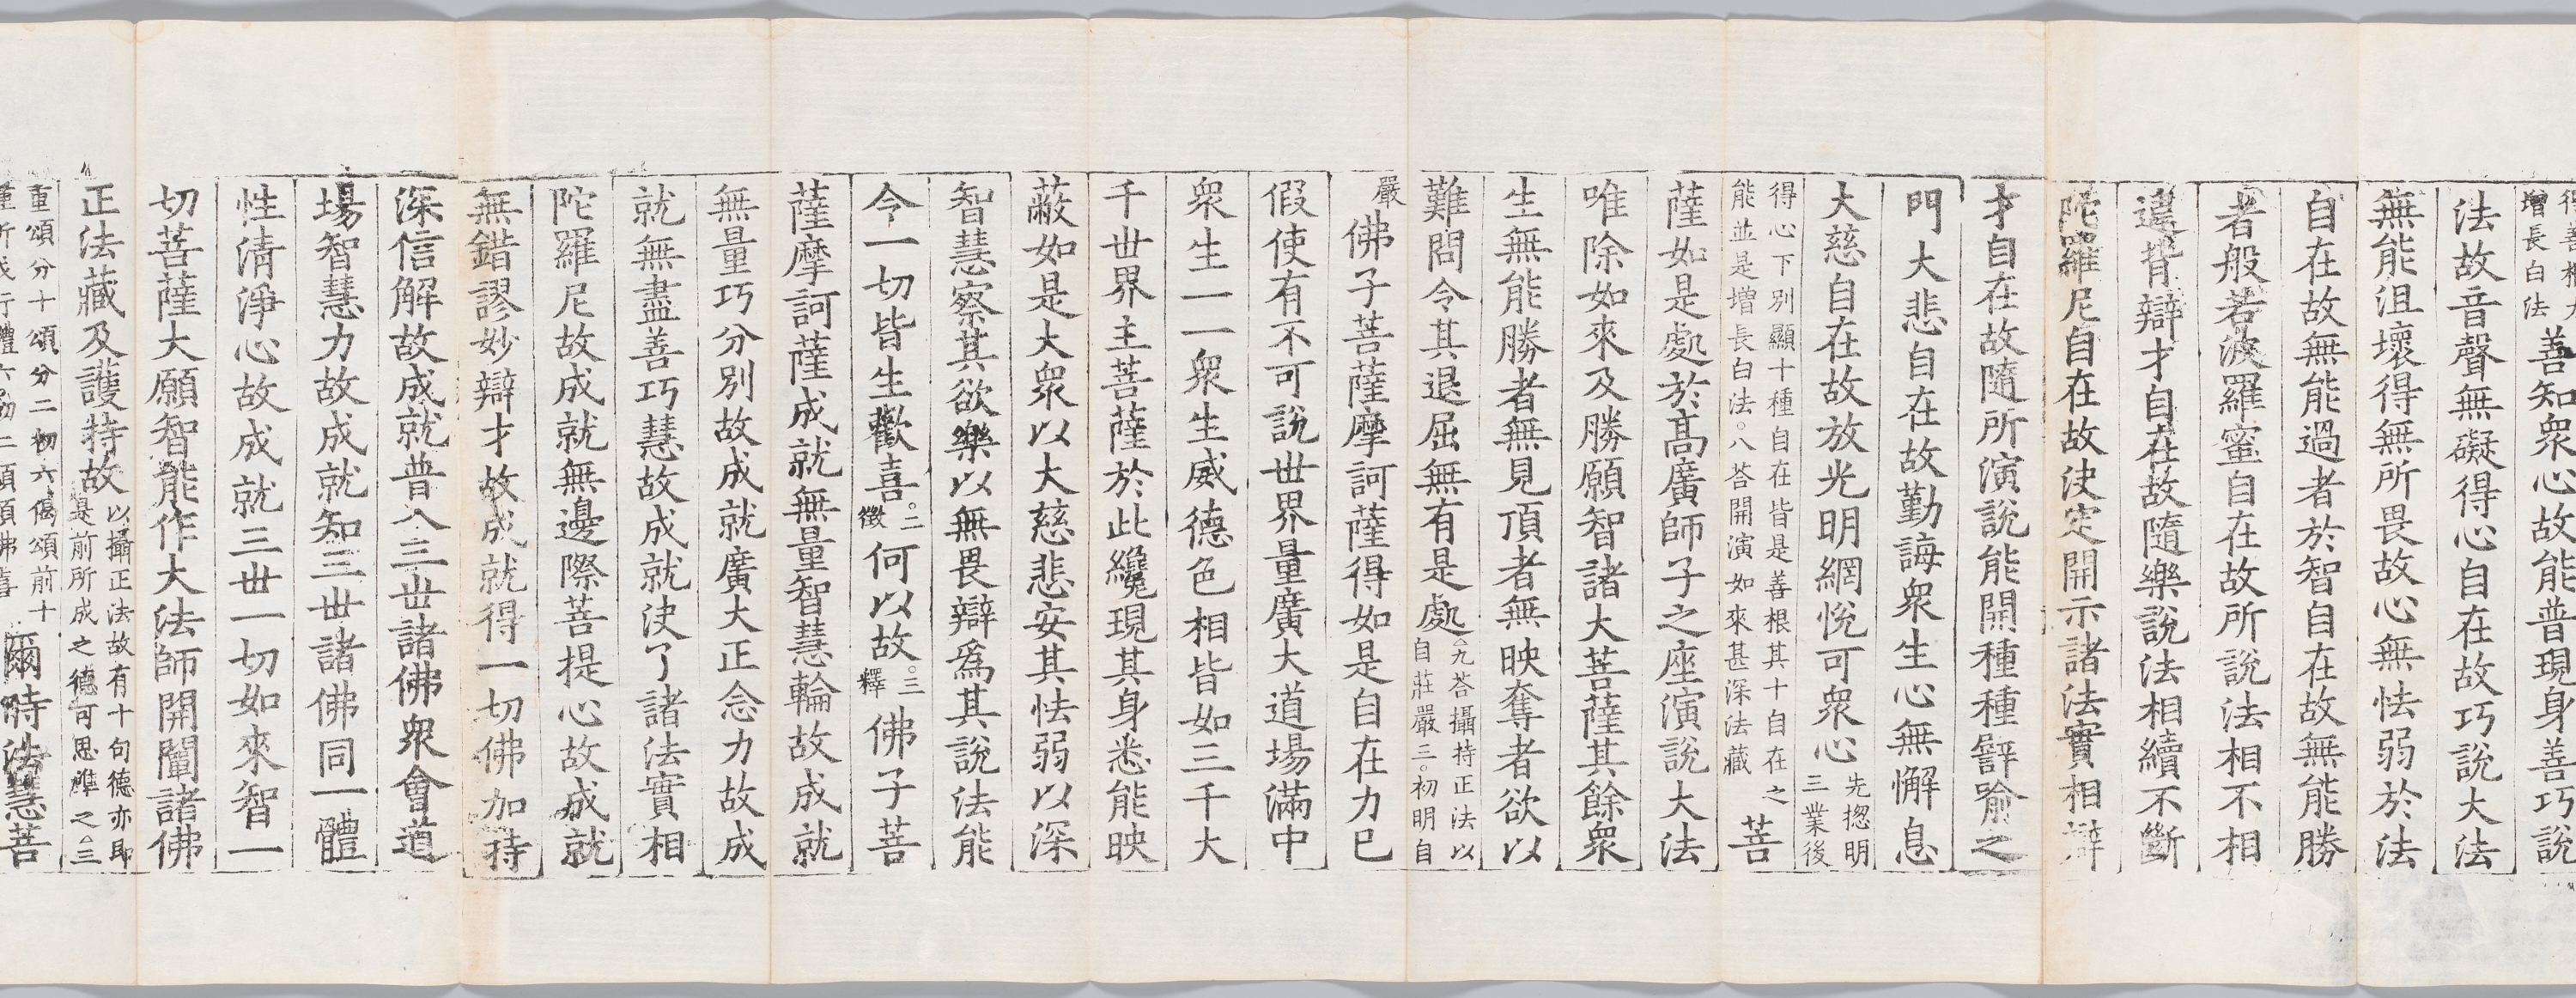 增長白法善知衆心故能普現身善巧說
法故音聲無礙得心自在故巧說大法
無能沮壞得無所畏故心無怯弱於法
自在故無能過者於智自在故無能勝
者般若波羅蜜自在故所說法相不相
違背辯才自在故隨樂說法相續不斷
陀羅尼自在故决定開示諸法實相辯
才自在故隨所演說能開種種譬喻之
門大悲自在故勤誨衆生心無懈息
大慈自在故放光明網悅可衆心先揔明三業後
得心下別顯十種自在皆是善根其十自在之
能並是增長白法。八荅開演如來甚深法藏菩
薩如是處於髙廣師子之座演說大法
唯除如來及勝願智諸大菩薩其餘衆
生無能勝者無見頂者無映奪者欲以
難問令其退屈無有是處九荅攝持正法以
自莊嚴三。初明自
嚴佛子菩薩摩訶薩得如是自在力已
假使有不可說世界量廣大道場滿中
衆生一一衆生威德色相皆如三千大
千世界主菩薩於此纔現其身悉能映
蔽如是大衆以大慈悲安其怯弱以深
智慧察其欲樂以無畏辯爲其說法能
令一切皆生歡喜。二徵何以故。三釋佛子菩
薩摩訶薩成就無量智慧輪故成就
無量巧分別故成就廣大正念力故成
就無盡善巧慧故成就决了諸法實相
陀羅尼故成就無邊際菩提心故成就
無錯謬妙辯才故成就得一切佛加持
深信解故成就普入三世諸佛衆會道
場智慧力故成就知三世諸佛同一體
性清淨心故成就三世一切如來智一
切菩薩大願智能作大法師開闡諸佛
正法藏及護持故以攝正法故有十句德亦即
是前所成之德可思準之。三
重頌分十頌分二初六偈頌前十
爾時法慧菩